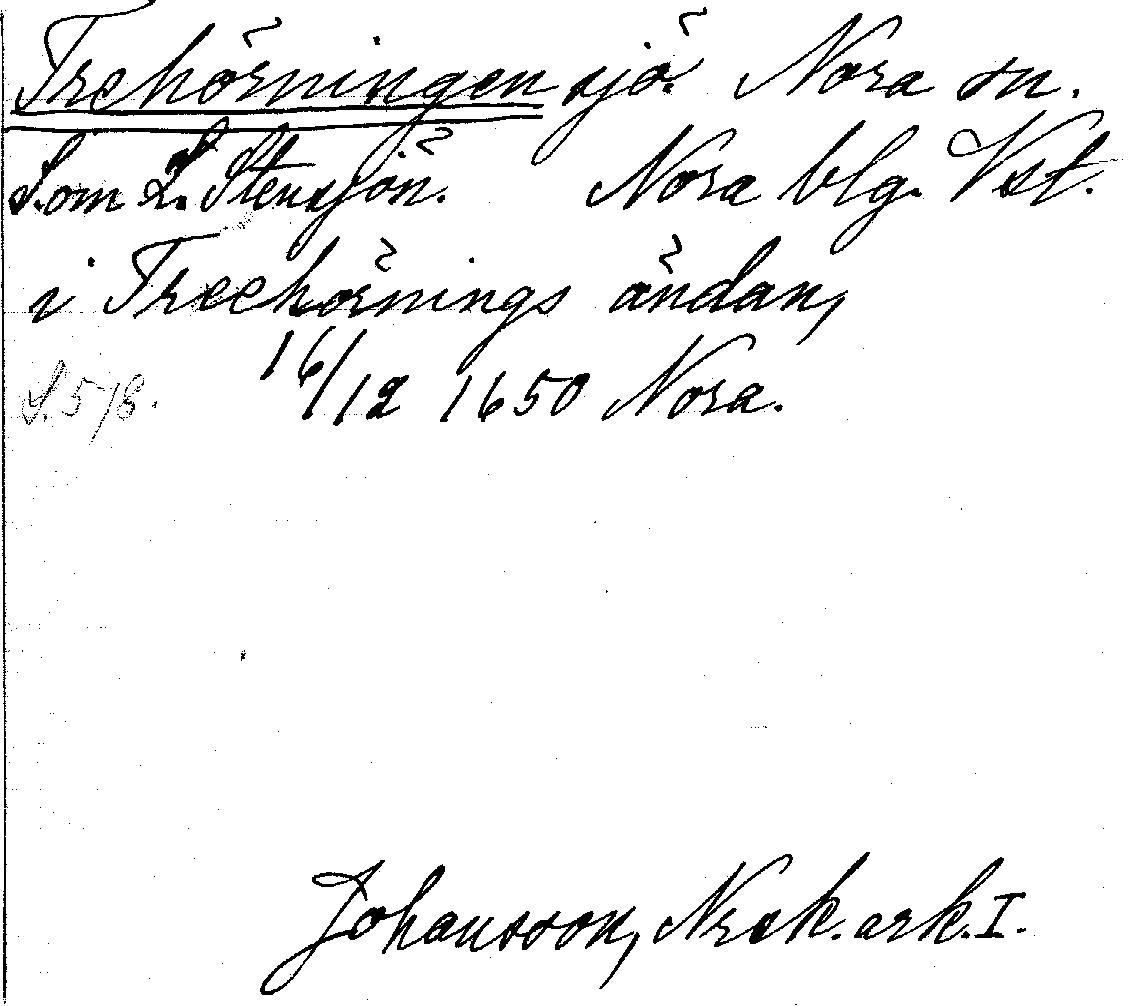 Trehörningen sjö. Nora sn.
S.om L. Stensjön. Nora blg. Vst.
i Treehörnings ändan,
S. 578. 16/12 1650 Nora.
Johansson, Nrck. ark. I.